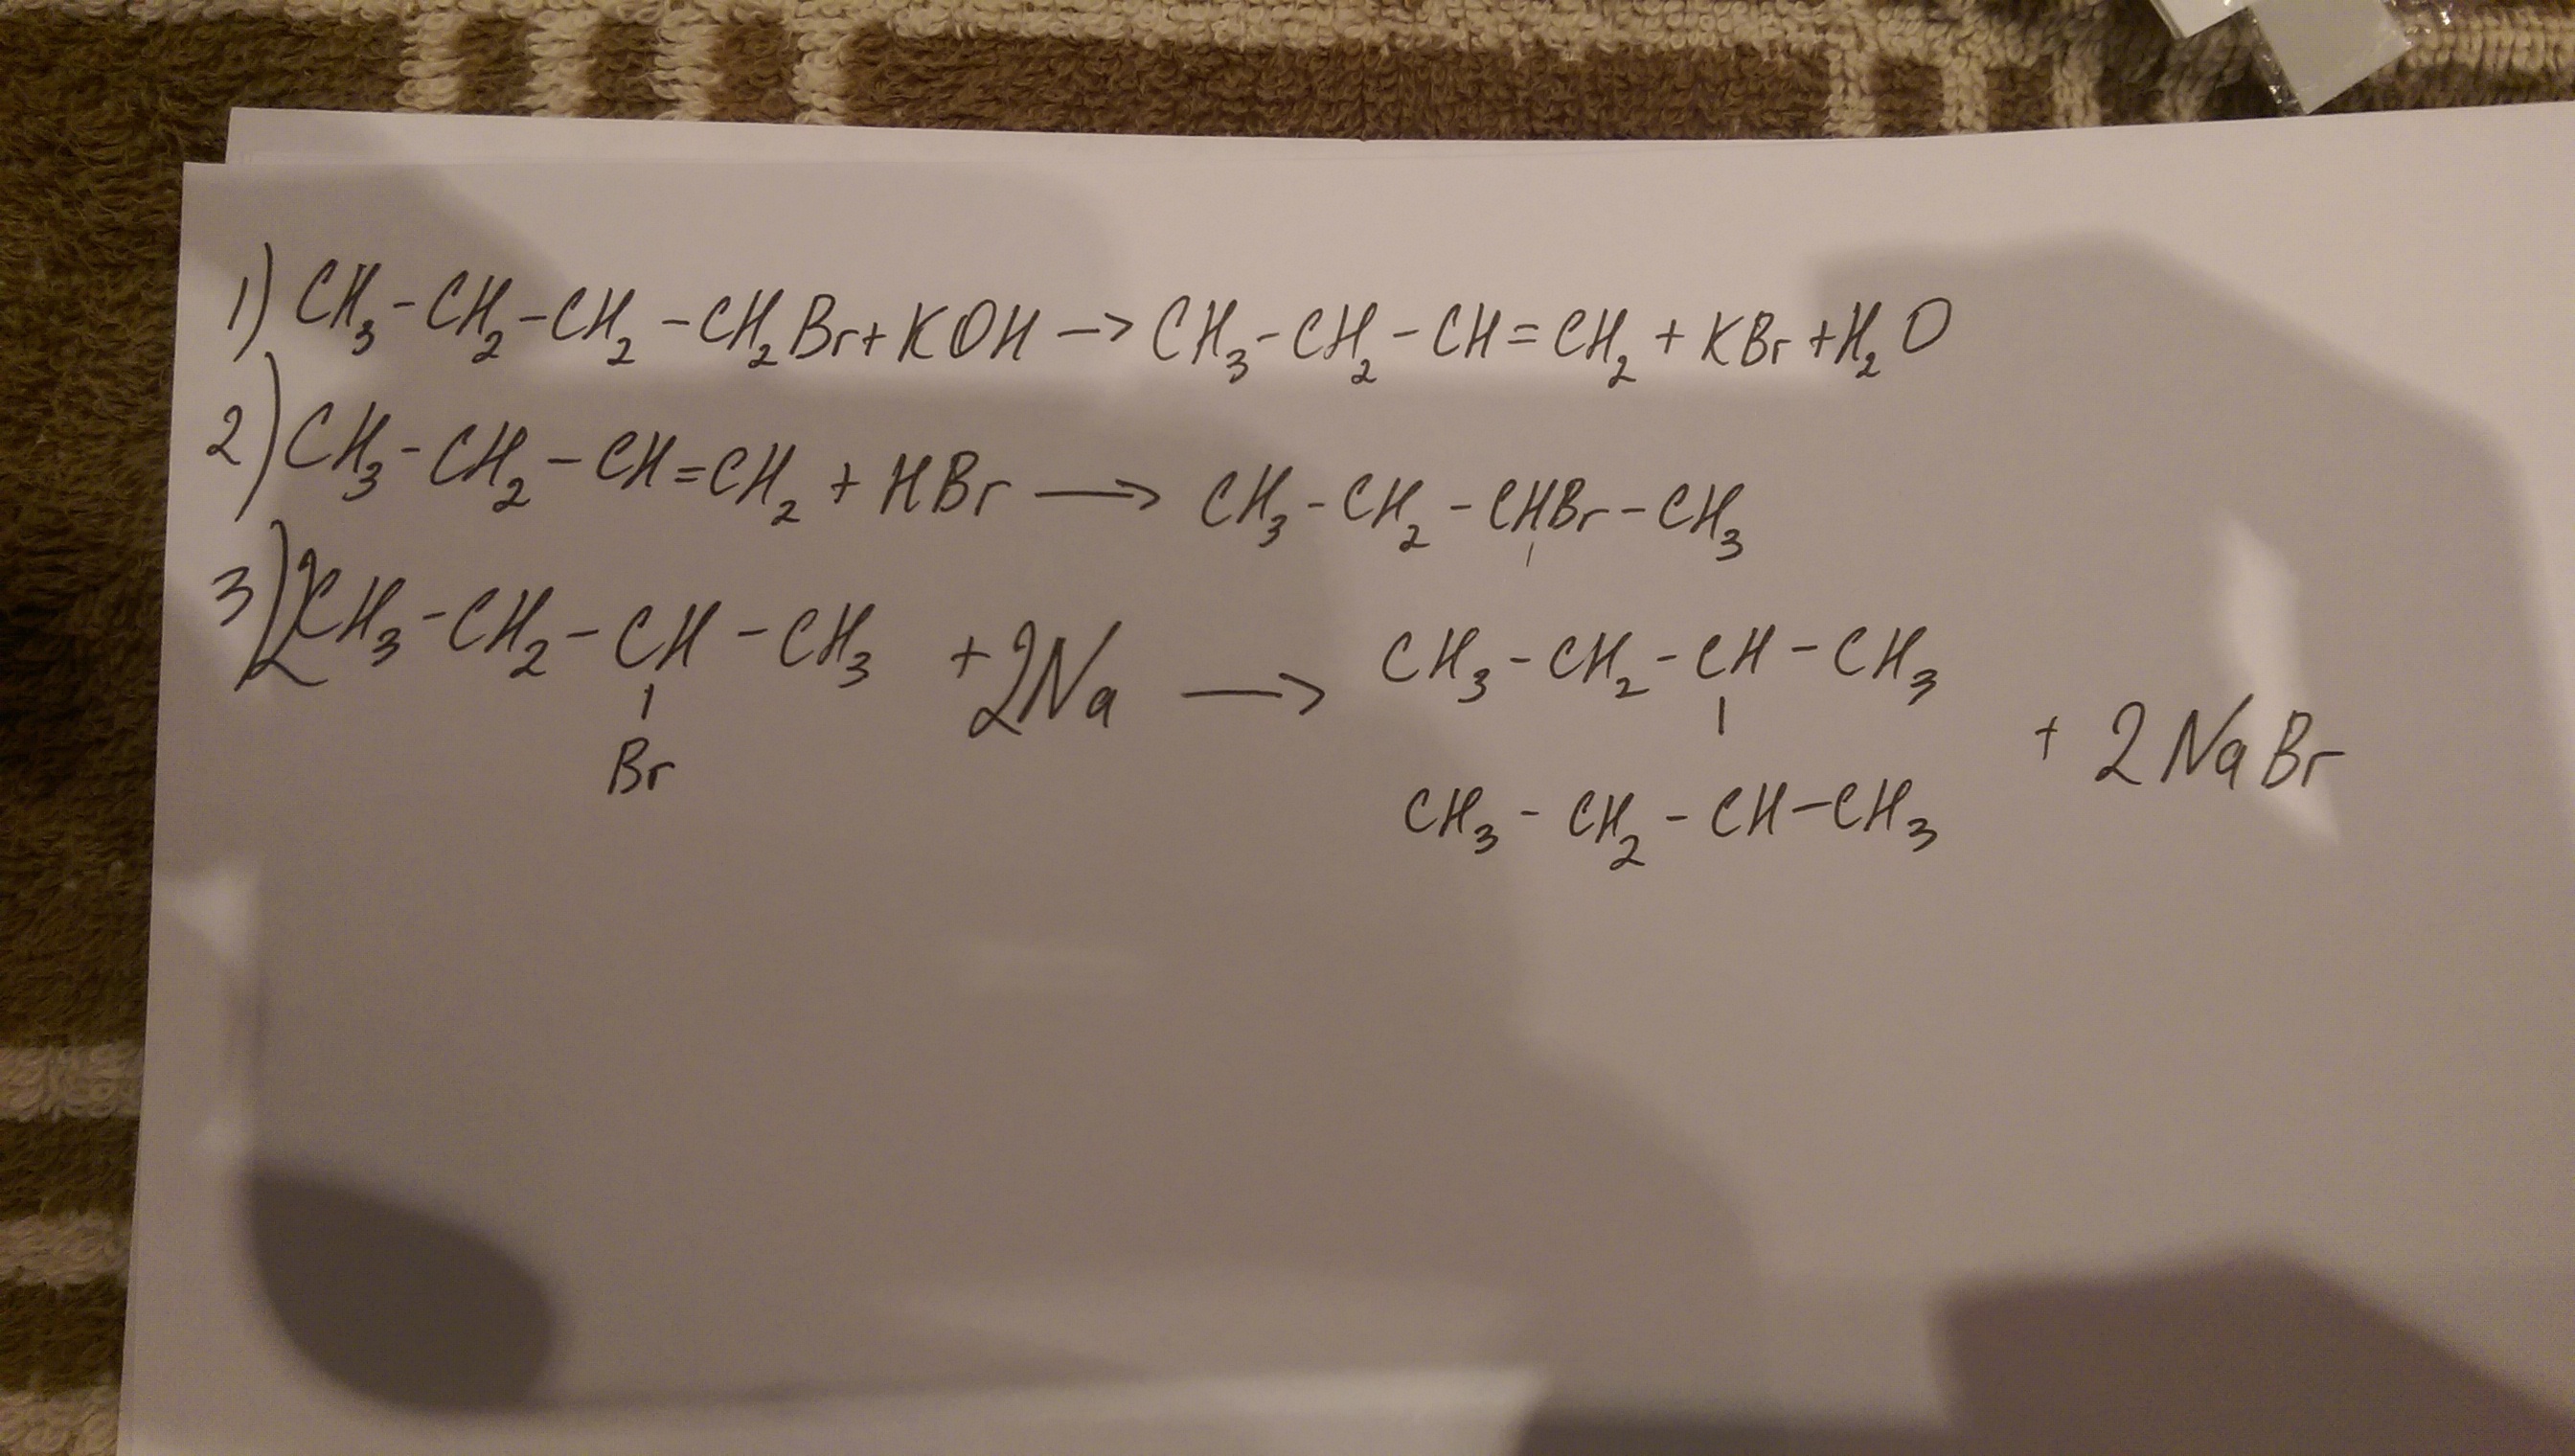 1) CH₃-CH₂-CH₂-CH₂Br+KOH → CH₃-CH₂-CH=CH₂+KBr+H₂O
2) CH₃-CH₂-CH=CH₂+HBr → CH₃-CH₂-CHBr-CH₃
3) 2CH₃-CH₂-CH-CH₃ +2Na → CH₃-CH₂-CH-CH₃ + 2NaBr
Br
CH₃-CH₂-CH-CH₃